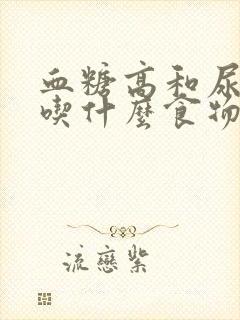 血糖高和尿
喫什麽食物
流戀紫